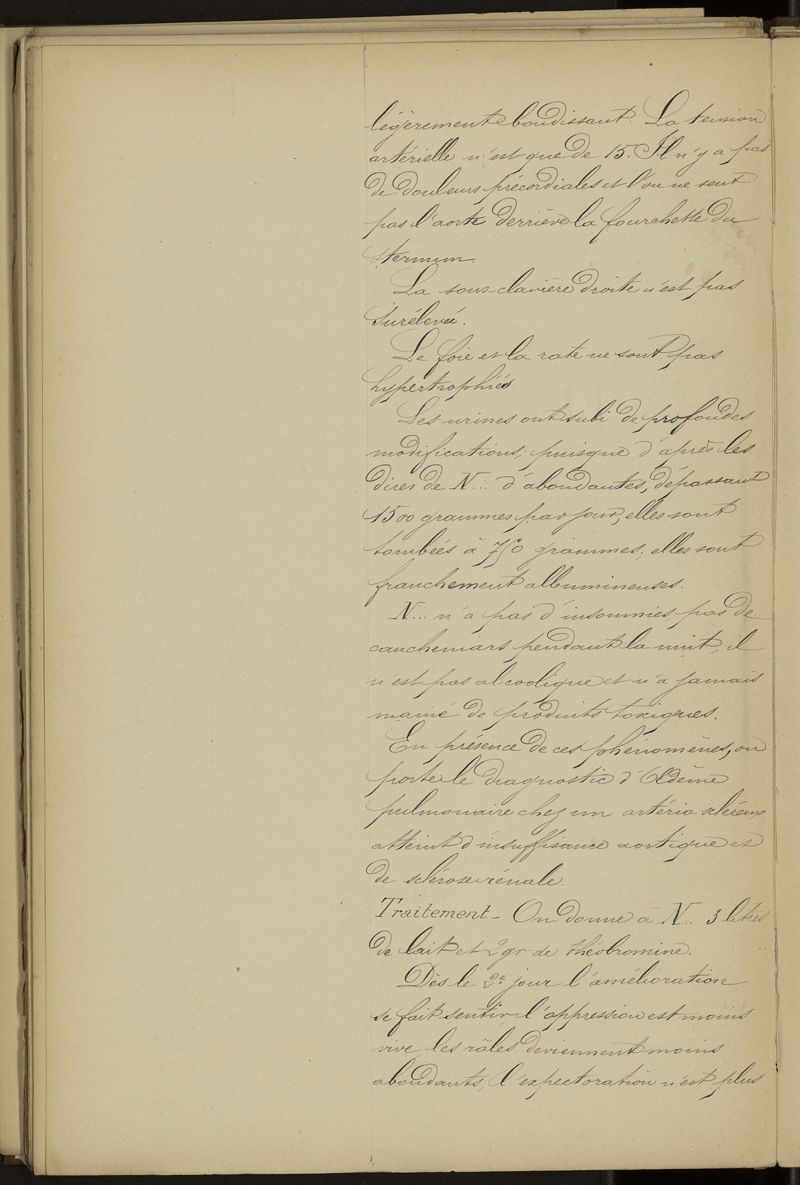 légèrement bondissant. La tension
artérielle n'est que de 15. Il n'y a pas
de douleurs précordiales et l'on ne sent
pas l'aorte derrière la fourchette du
sternum.
La sous-clavière droite n'est pas
surélevée.
Le foie et la rate ne sont pas
hypertrophiés.
Les urines ont subi de profondes
modifications, puisque d'après les
dires de N... d'abondantes, dépassant
1500 grammes par jour, elles sont
tombées à 750 grammes; elles sont
franchement albumineuses.
N... n'a pas d'insomnies pas de
cauchemars pendant la nuit, il
n'est pas alcoolique et n'a jamais
manié de produits toxiques.
En présence de ces phénomènes, on
porte le diagnostic d'Œdème
pulmonaire chez un artério scléreux
atteint d'insuffisance aortique et
de sclérose rénale.
Traitement - On donne à N... 3 litres
de lait et 2 gr de théobromine.
Dès le 2e jour l'amélioration
se fait sentir, l'oppression est moins
vive les râles deviennent moins
abondants, l'expectoration n'est plus